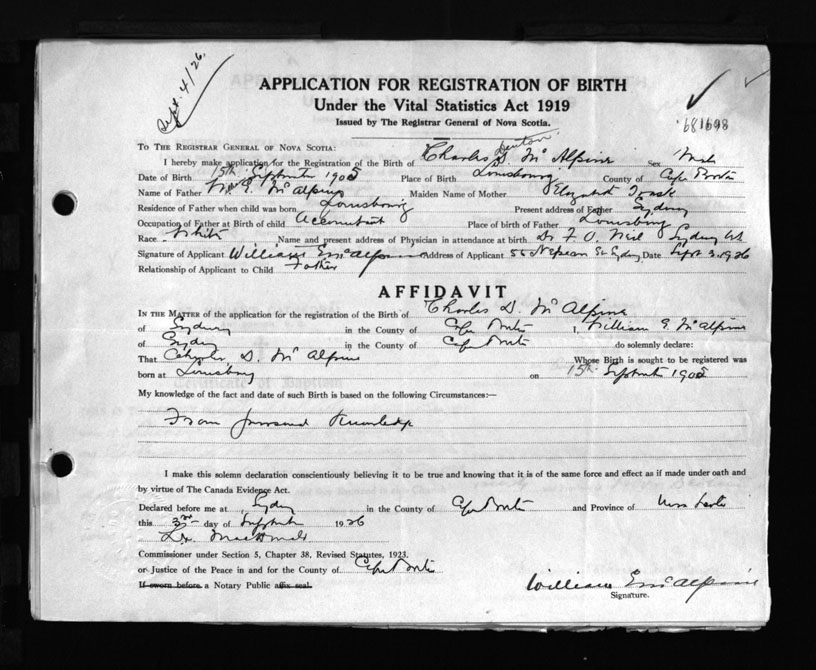 Sept. 4/26.
APPLICATION FOR REGISTRATION OF BIRTH
Under the Vital Statistics Act 1919
Issued by The Registrar General of Nova Scotia.
681698
TO THE REGISTRAR GENERAL OF NOVA SCOTIA:
Denton
I hereby make application for the Registration of the Birth of Charles D. McAlpine Sex Male
Date of Birth 15th September 1905 Place of Birth Louisbourg County of Cape Breton
Name of Father Wm E. McAlpine Maiden Name of Mother Elizabeth Trask
Residence of Father when child was born Louisbourg Present address of Father Sydney
Occupation of Father at Birth of child Accountant Place of birth of Father Louisburg
Race White Name and present address of Physician in attendance at birth Dr F. O. Sydney
Signature of Applicant William E McAlpine Address of Applicant 55 Nepean St Sydney Date Sept 3, 1926
Relationship of Applicant to Child Father
AFFIDAVIT
IN THE MATTER of the application for the registration of the Birth of Charles D. McAlpine
of Sydney in the County of Cape Breton I, William E. McAlpine
of Sydney in the County of Cape Breton do solemnly declare:
That Charles D. McAlpine Whose Birth is sought to be registered was
born at Louisbourg on 15th September 1905
My knowledge of the fact and date of such Birth is based on the following Circumstances:—
From personal Knowledge
I make this solemn declaration conscientiously believing it to be true and knowing that it is of the same force and effect as if made under oath and
by virtue of The Canada Evidence Act.
Declared before me at Sydney in the County of Cape Breton and Province of Nova Scotia
this 3rd day of September 1926
MacDonald
Commissioner under Section 5, Chapter 38, Revised Statutes, 1923.
or Justice of the Peace in and for the County of Cape Breton
If sworn before a Notary Public affix seal.
William E McAlpine
Signature.